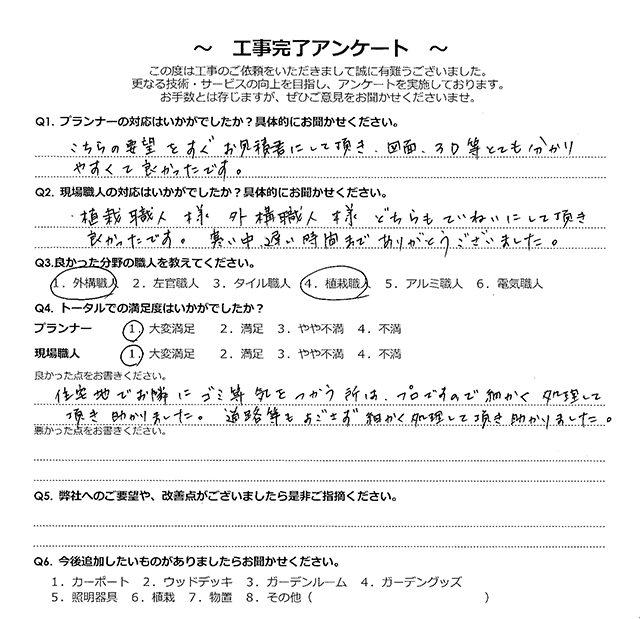 ～ 工事完了アンケート ～
この度は工事のご依頼をいただきまして誠に有難うございました。
更なる技術・サービスの向上を目指し、アンケートを実施しております。
お手数とは存じますが、ぜひご意見をお聞かせくださいませ。
Q1. プランナーの対応はいかがでしたか？具体的にお聞かせください。
こちらの要望をすぐお見積書にして頂き、図面、3D等とても分かり
やすくて良かったです。
Q2. 現場職人の対応はいかがでしたか？具体的にお聞かせください。
・植栽職人様 外構職人様 どちらもていねいにして頂き
良かったです。寒い中、遅い時間までありがとうございました。
Q3.良かった分野の職人を教えてください。
1．外構職人 2．左官職人 3．タイル職人 4．植栽職人 5．アルミ職人 6．電気職人
Q4. トータルでの満足度はいかがでしたか？
プランナー 1．大変満足 2．満足 3．やや不満 4．不満
現場職人 1．大変満足 2．満足 3．やや不満 4．不満
良かった点をお書きください。
住宅地でお隣にゴミ等気をつかう所は、プロですので細かく処理して
頂き助かりました。道路等もよごさず細かく処理して頂き助かりました。
悪かった点をお書きください。
Q5. 弊社へのご要望や、改善点がございましたら是非ご指摘ください。
Q6. 今後追加したいものがありましたらお聞かせください。
1．カーポート 2．ウッドデッキ 3．ガーデンルーム 4．ガーデングッズ
5．照明器具 6．植栽 7．物置 8．その他（ ）